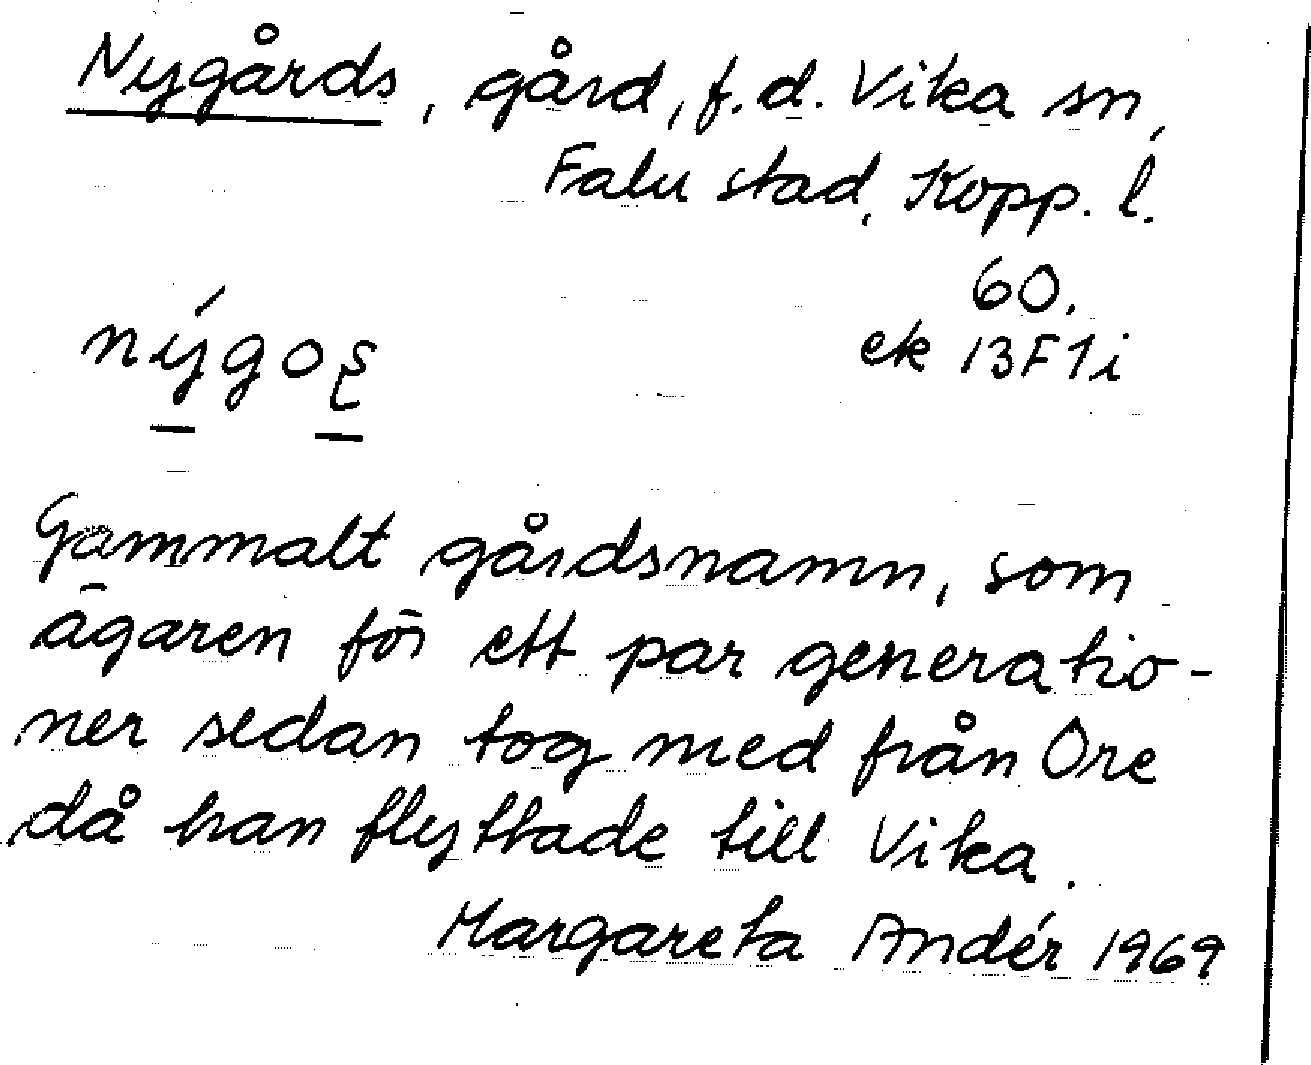 Nygårds, gård, f.d. Vika sn,
Falu stad, Kopp. l.
60.
nýgoş
ek 13F1i
Gammalt gårdsnamn, som
ägaren för ett par generatio-
ner sedan tog med från Ore
då han flyttade till Vika.
Margareta Andér 1969